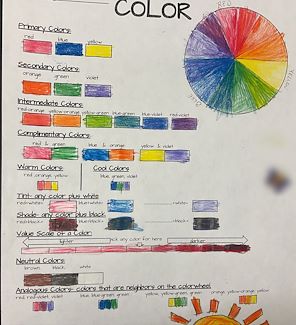 COLOR
RED
Primary Colors:
red blue yellow
Secondary Colors:
orange green violet
Intermediate Colors:
red-orange yellow-orange yellow-green blue-green blue-violet red-violet
Complimentary Colors:
red & green blue & orange yellow & violet
Warm Colors: Cool Colors
red, orange, yellow blue, green, violet
Tint- any color plus white
red+white= +white= +white=
Shade- any color plus black
red+black= +black= +black=
Value Scale of a Color
lighter pick any color for here darker
Neutral Colors:
brown black white
Analogous Colors- colors that are neighbors on the colorwheel
red, red-violet, violet blue, blue-green, green yellow, yellow-green, green orange, yellow-orange, yellow